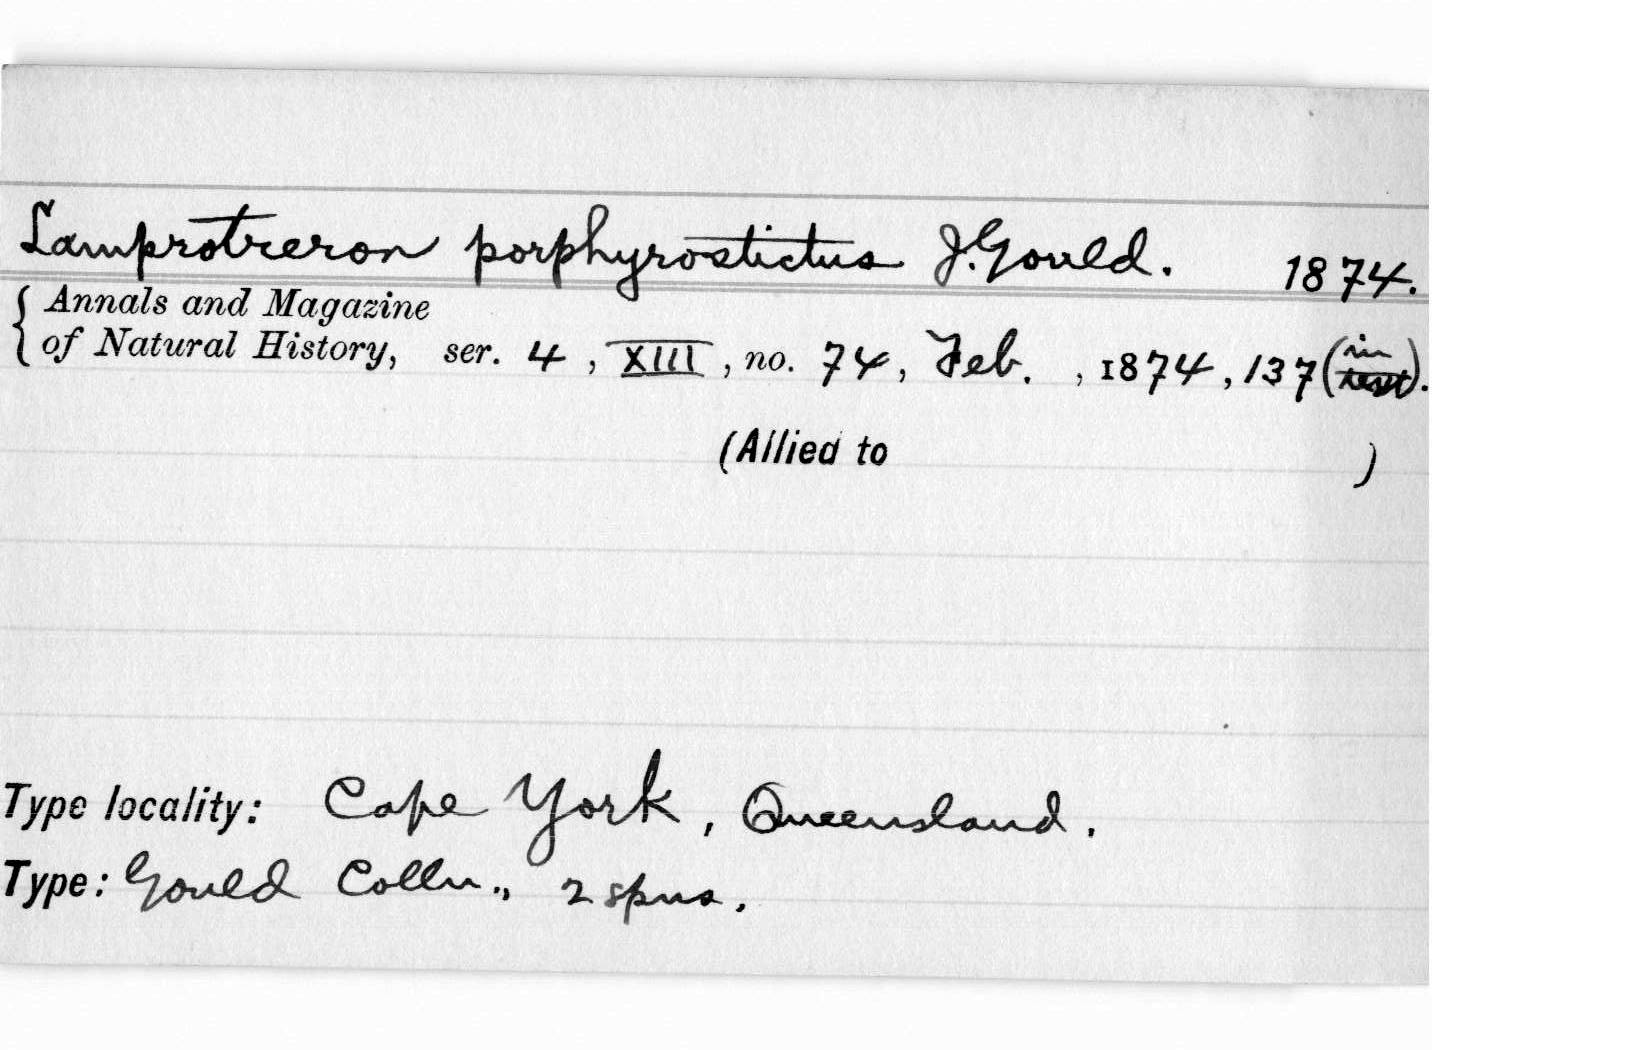 Lamprotreron porphyrostictus J. Gould. 1874.
{ Annals and Magazine
of Natural History, ser. 4, XIII, no. 74, Feb. , 1874, 137 (in text).
(Allied to )
Type locality: Cape York, Queensland.
Type: Gould Colln., 2 spns.